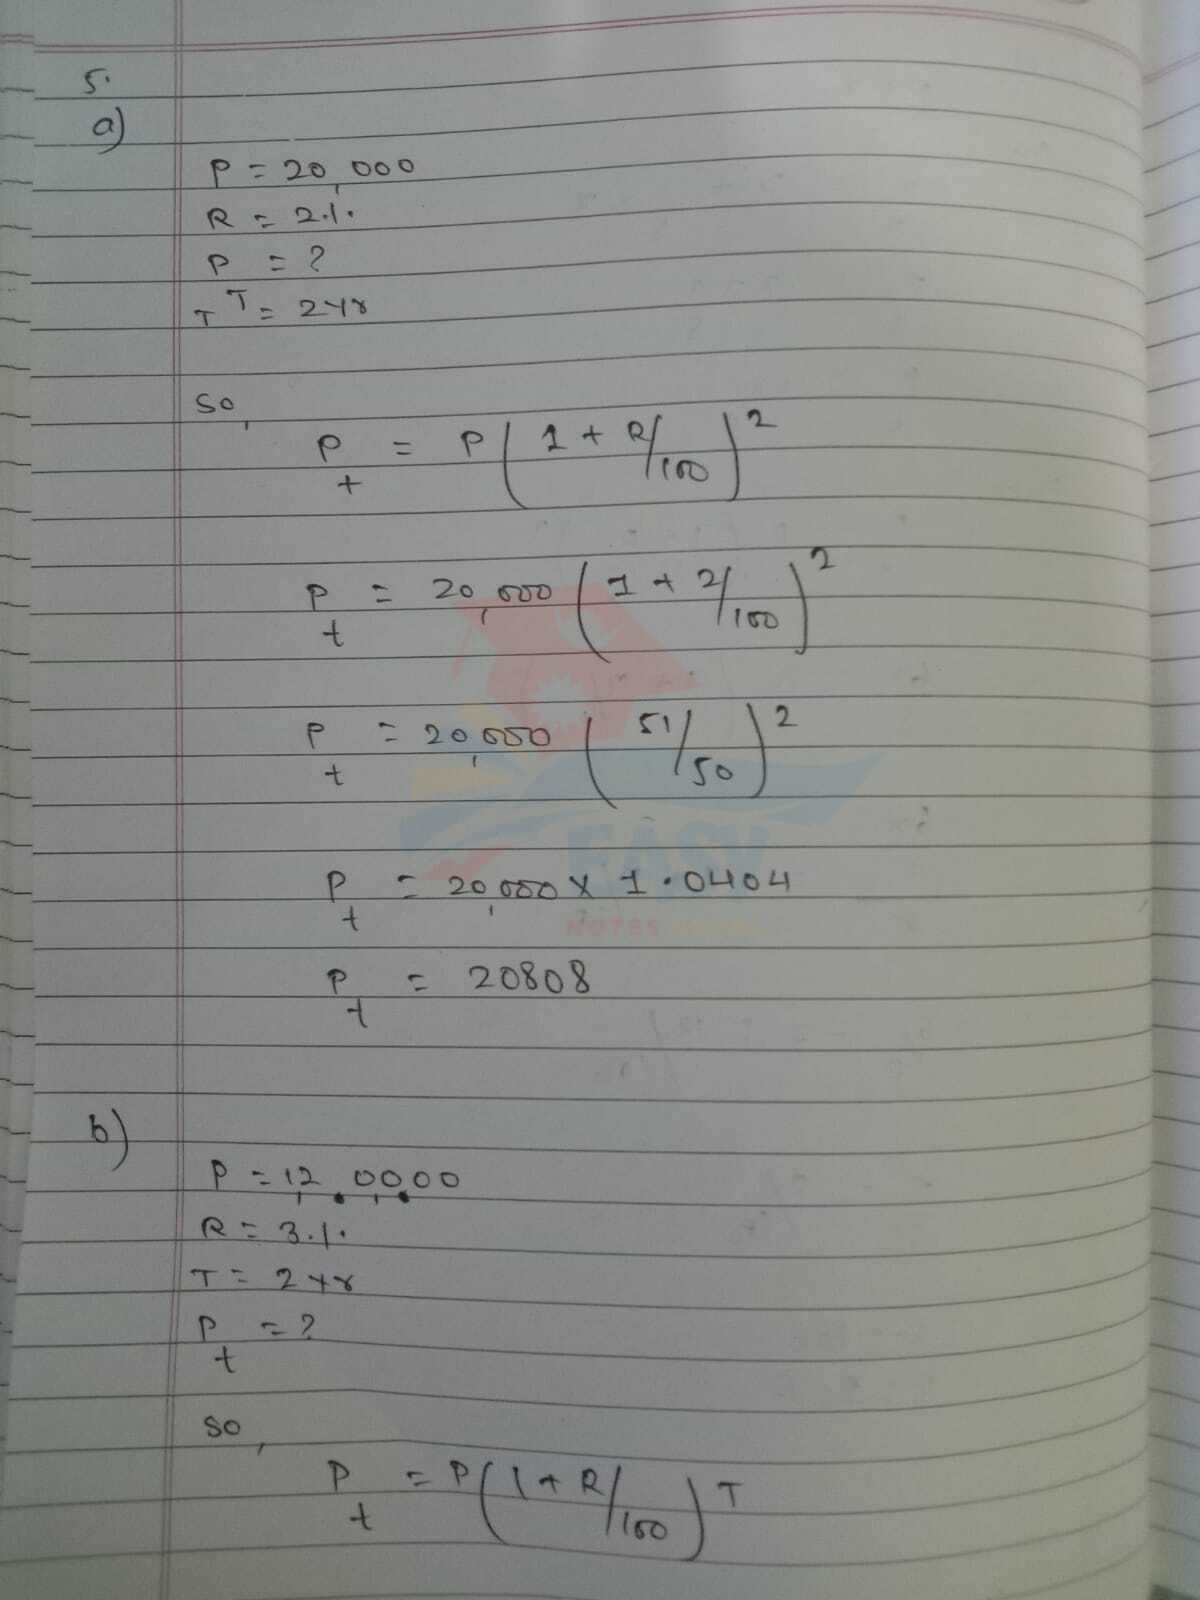 5.
a)
P = 20,000
R = 2%
P = ?
T T = 2yr
so,
Pt = P(1 + R/100)²
Pt = 20,000(1 + 2/100)²
Pt = 20,000(51/50)²
Pt = 20,000 × 1.0404
EASY
NOTES
Pt = 20808
b)
P = 12,00,00
R = 3%
T = 2yr
Pt = ?
so,
Pt = P(1 + R/100)ᵀ